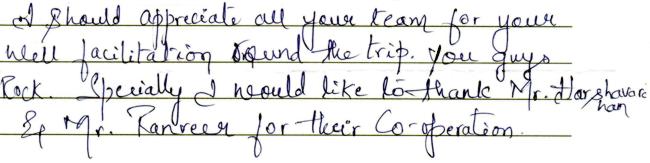 I should appreciate all your team for your
well facilitation round the trip. You guys
Rock. Specially I would like to thank Mr. Harshavardhan
& Mr. Ranveer for their Co-operation.